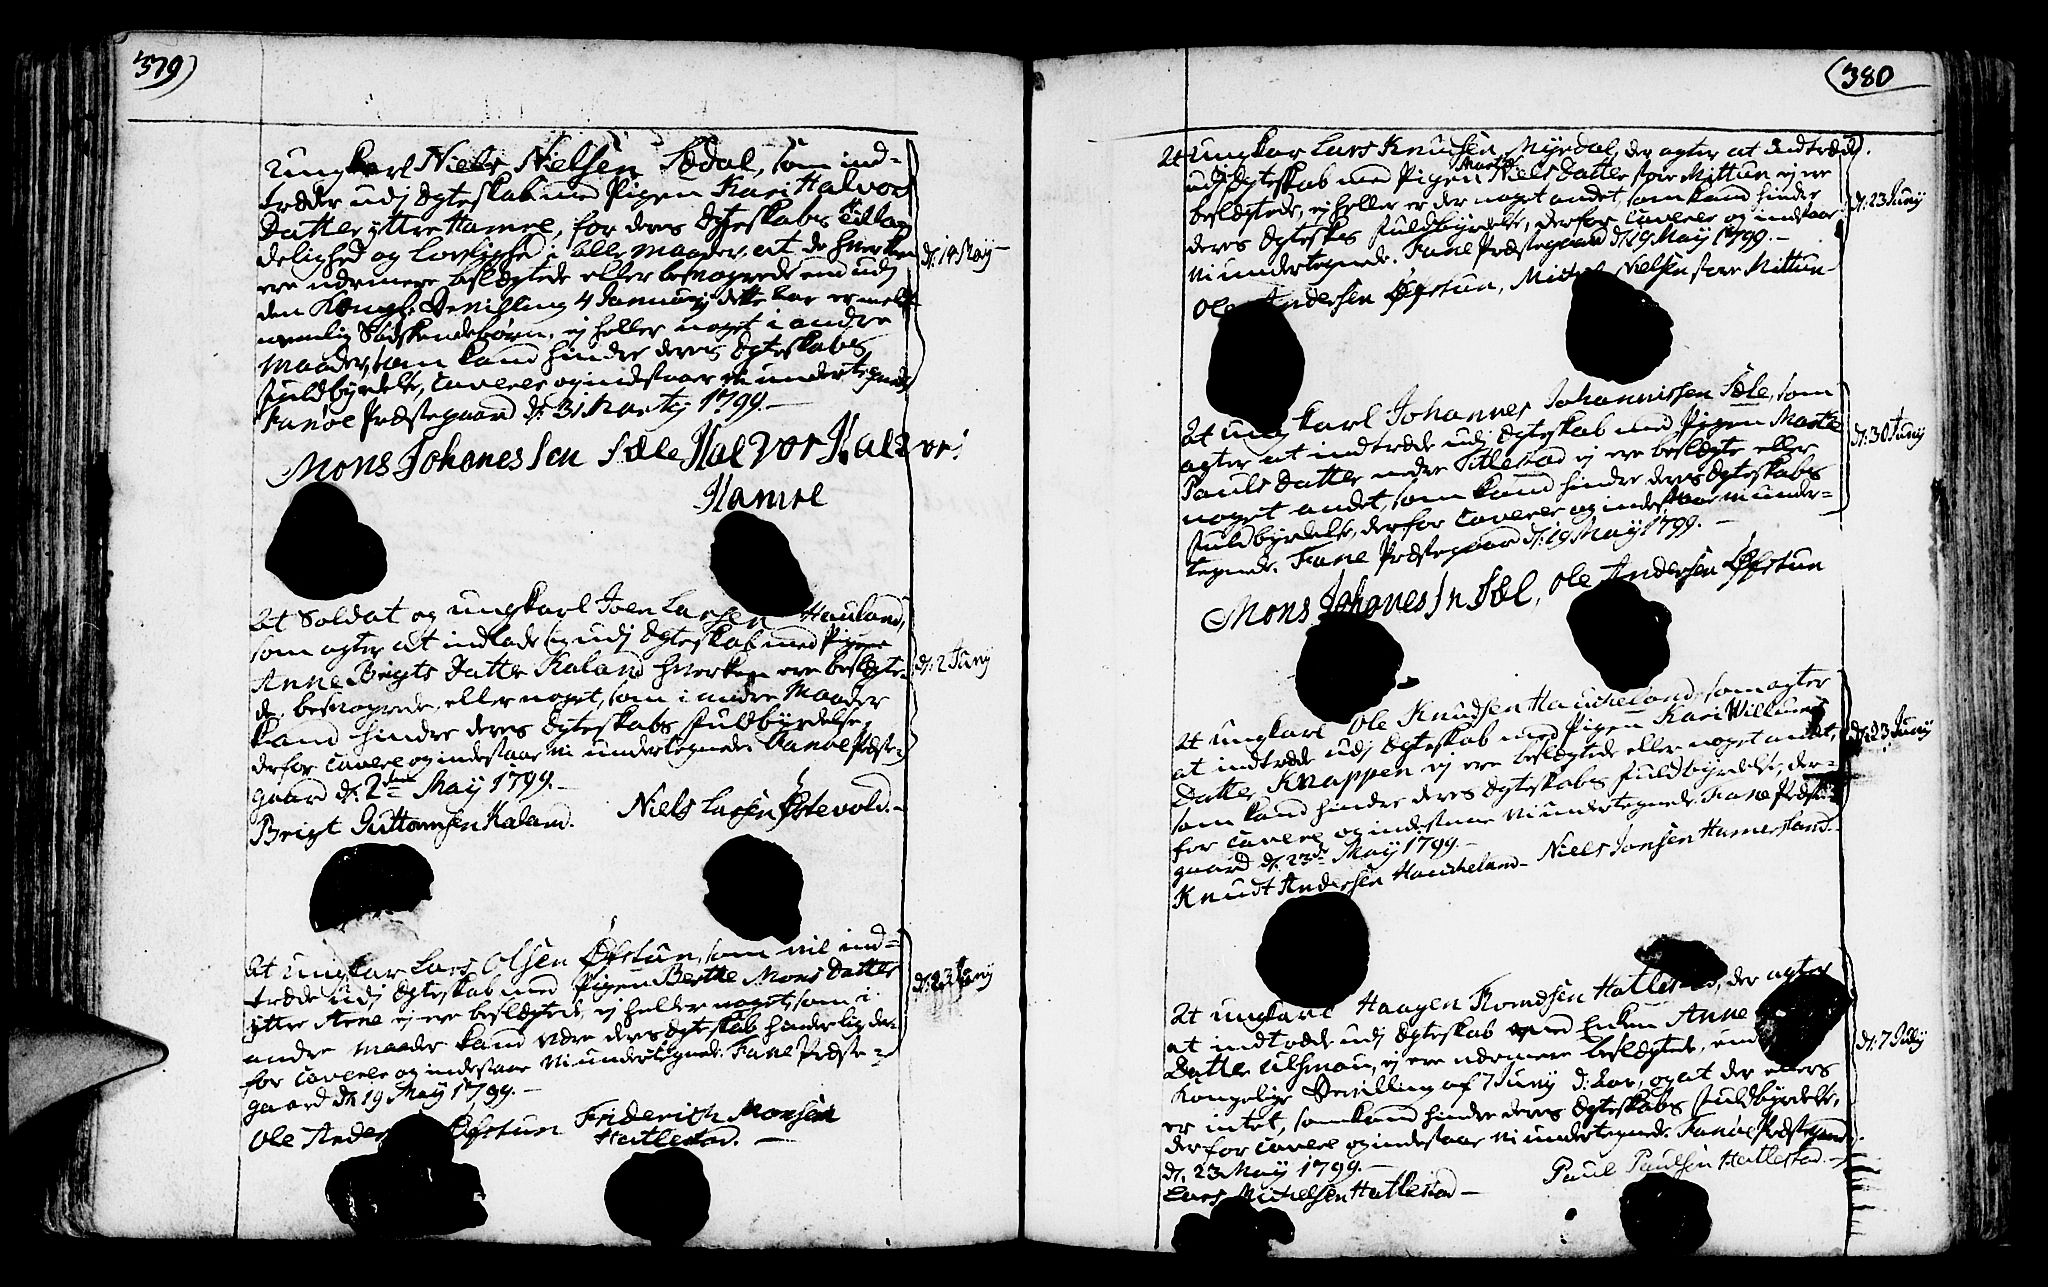 379)
ungkarl Niels Nielsen Sædal, som ind-
træde udj Ægteskab med Pigen Kari Halvors
Datter yttre Hamre, for deres Ægteskabs
delighed og Lovlighed i alle Maader, at de hverken
ere nærmere beslægtede eller besvogrede end udj
den Kongl. Bevilling 4 January dette Aar er meldt
nemlig Sødskendebørn, ej heller noget i andre
Maader, som kand hindre deres Ægteskabs
fuldbyrdelse, caverer og indestaar vi undertegnede
Fanøe Præstegaard d: 31 Marty 1799.-
d: 14 May-
Mons Johanessen Sæle Halvor Halvor:
Hamre
At Soldat og ungkarl Joen Larsen Hauland,
som agter at indlade sig udj Ægteskab med Pigen
Anne Brigts Datter Kaland hverken ere beslægte-
de, besvogrede, eller noget, som i andre Maader
kand hindre deres Ægteskabs fuldbyrdelse,
derfor cavere og indestaar vi undertegnede. Fanøe Præste-
gaard d: 2den May 1799.-
d: 2 Juny
Brigt Guttormsen Kaland. Niels Larsen Østevold.-
At ungkar Lars Olsen Øfstun, som vil ind-
træde udj Ægteskab med Pigen Berthe Mons Datter
yttre Arne ej ere beslægtede, ej heller noget, som i
andre Maader kand være deres Ægteskab hinderlig der-
for cavere og indestaar vi undertegnede. Fane Præste-
gaard d: 19 May 1799.-
d: 23 Juny
Ole Ander Øfstun Friderich Monsen
Hatlestad.-
(380
At ungkar Lars Knudsen Myrdal, der agter at indtræde
udj Ægteskab med Pigen Marthe Niels Datter store Mittun ej ere
beslægtede, ej heller er der noget andet, som kand hindre
deres Ægteskabs fuldbyrdelse, derfor caverer og indstaar
vi undertegnede. Fane Præstegaard d: 19 May 1799.-
d: 23 Juny
Ole Andersen Øfstun, Michel Nielsen store Mittun-
At ungkarl Johannes Johannissen Sæle, som
agter at indtræde udj Ægteskab med Pigen Marthe
Pauls Datter nedre Titlestad ej ere beslægte eller
noget andet, som kand hindre deres Ægteskabs
fuldbyrdelse, derfor caverer og indestaar vi under=
tegnede. Fane Præstegaard d: 19 May 1799.-
d: 30 Juny
Mons Johanes In Sæl, Ole Andersen Øfstun
At ungkarl Ole Knudsen Hauckeland, som agter
at indtræde udj Ægteskab med Pigen Kari Willums
Datter Knappen ej ere beslægtede eller noget andet,
som kand hindre deres Ægteskabs fuldbyrdelse, der-
for cavere og indestaar vi undertegnede. Fane Præste
gaard d: 23de May 1799.-
d: 23 Juny
Knudt Andersen Hauckeland- Niels Jonsen Hamersland.
At ungkarl Haagen Hatlestad, der agter
at indtræde udj Ægteskab med Enken Anne
Datter ej ere nærmere beslægtede, end
Kongelige Bevilling af 7 Juny d: Aar, og at der ellers
er intet, som kand hindre deres Ægteskabs fuldbyrdelse,
derfor cavere og indestaar vi undertegnede. Fanøe Præstegaard
d: 23 May 1799.-
d: 7 July
Lars Michelsen Hatlestad- Paul Paulsen Hatlestad.-